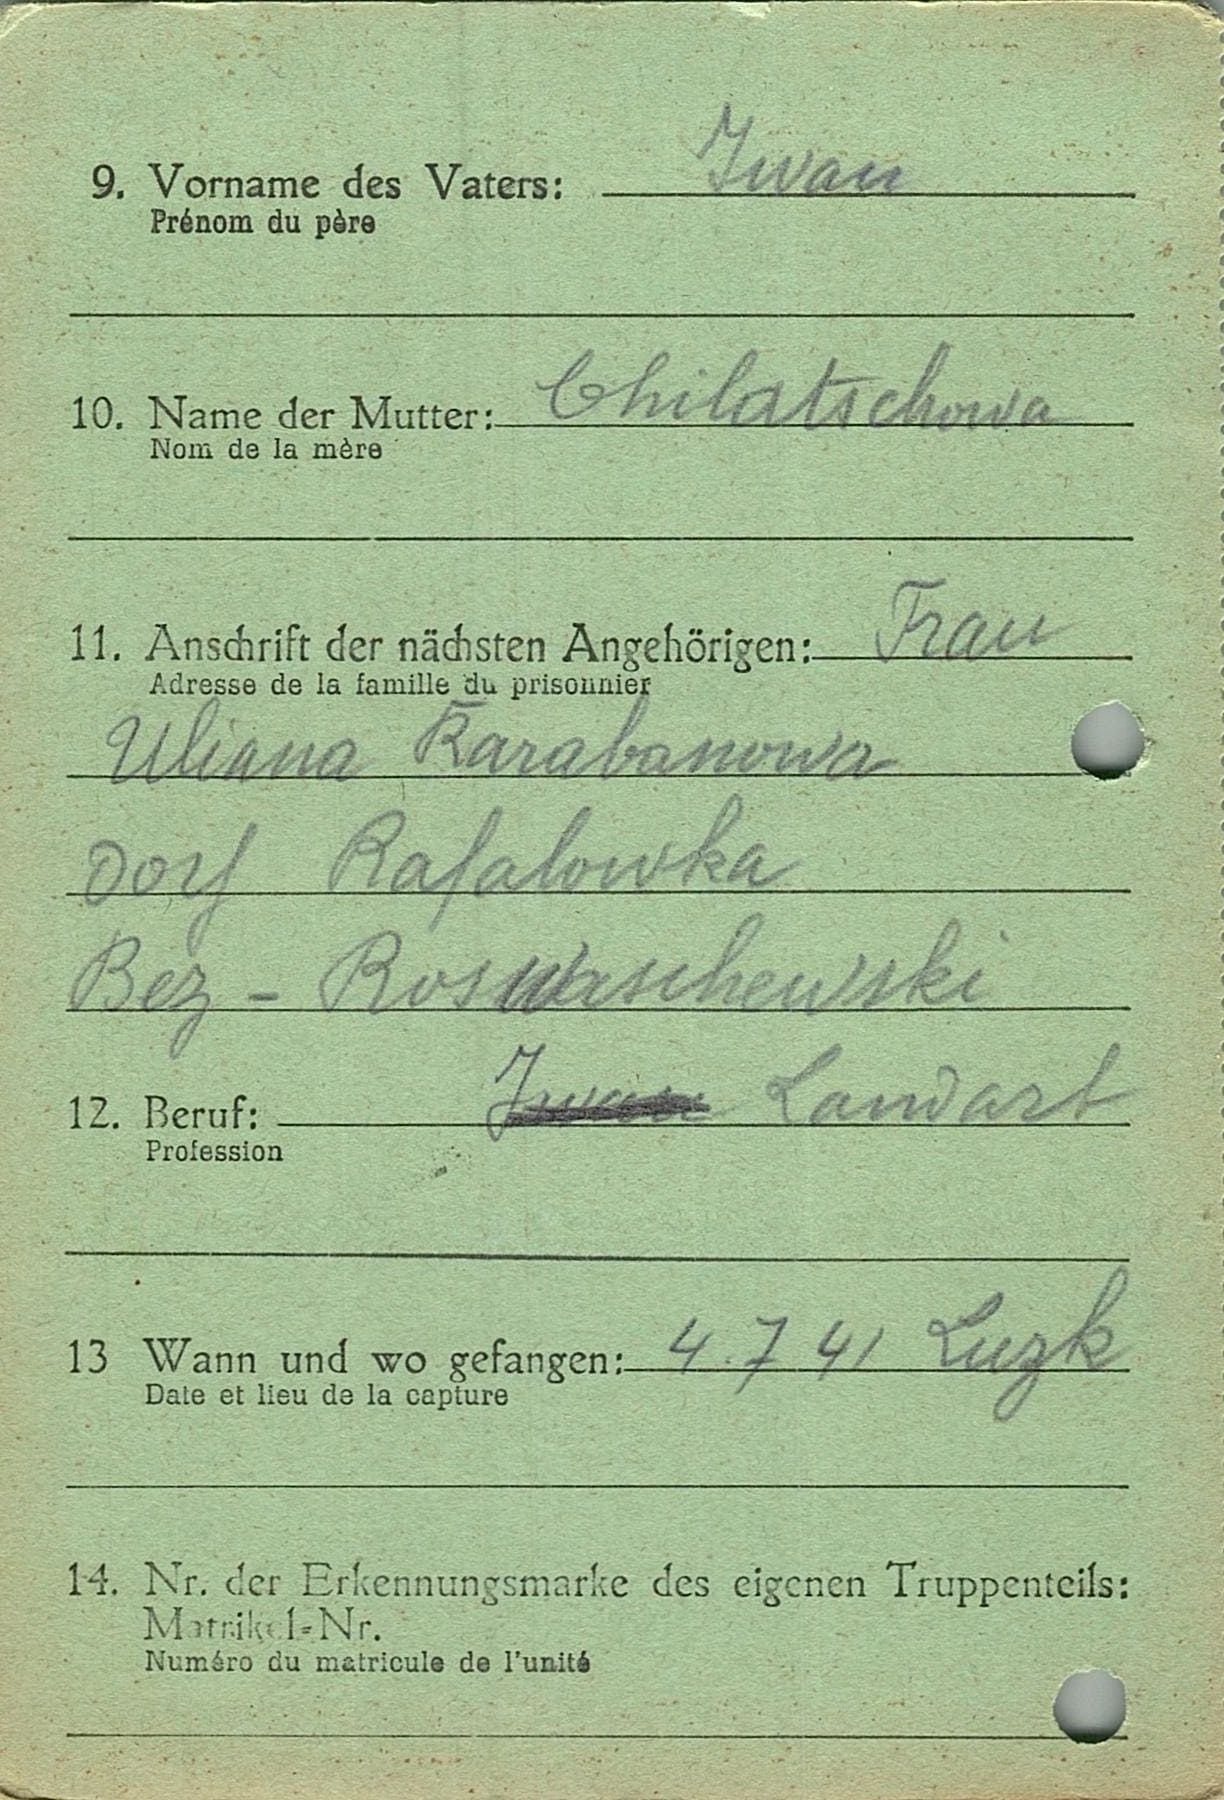 9. Vorname des Vaters: Iwan
Prénom du père
10. Name der Mutter: Chilatschowa
Nom de la mère
11. Anschrift der nächsten Angehörigen: Frau
Adresse de la famille du prisonnier
Uliana Karabanowa
Dorf Rafalowka
Bez - Roswaschewski
12. Beruf: Iwan Landarb
Profession
13 Wann und wo gefangen: 4.7 41 Luzk
Date et lieu de la capture
14. Nr. der Erkennungsmarke des eigenen Truppenteils:
Matrikel-Nr.
Numéro du matricule de l'unité